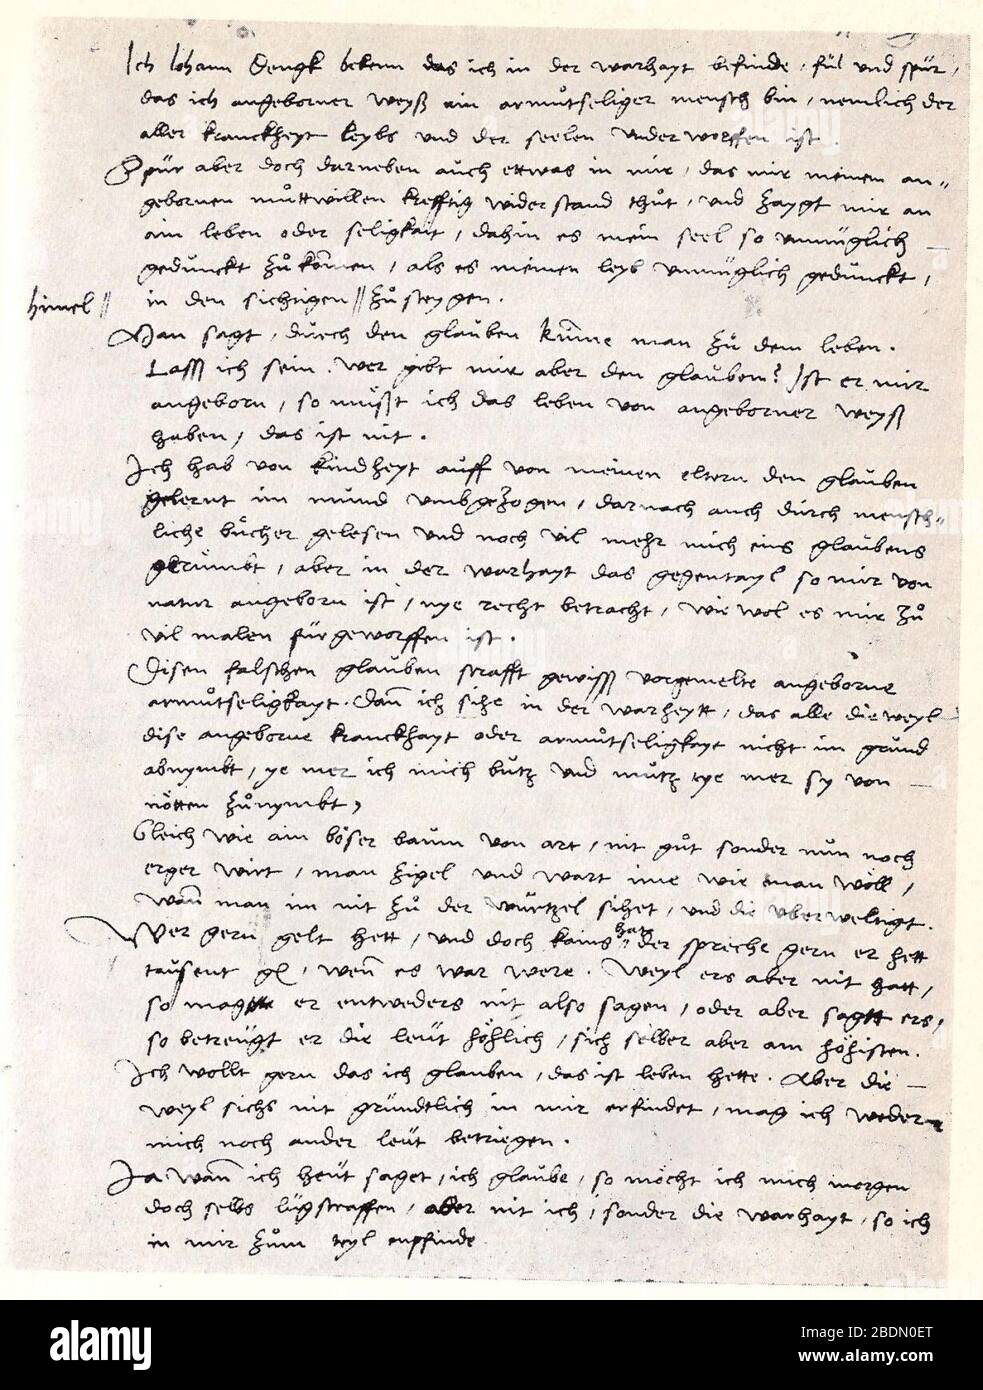 Ich Johann Dengk bekenn das ich in der warhayt befinde, fül und spür,
das ich angeborner weyß ain armůtseliger mensch bin, nemlich der
aller kranckheyt leybs und der seelen underworffen ist
Spür aber doch darneben auch ettwas in mir, das mir meinem an-
gebornen můttwillen krefftig widerstand thůt, und zaygt mir an
ain leben oder seligkait, dahin es mein seel so unmüglich
gedunckt zů kommen, als es meinen leyb unmüglich gedunckt,
himel//
in den sichtigen // zů steygen.
Man sagt, durch den glauben kumme man zů dem leben.
Lasß ich sein. wer gibt mir aber den glauben? Ist er mir
angeborn, so mußt ich das leben von angeborner weyß
haben, das ist nit.
Ich hab von kindheyt auff von meinen eltern den glauben
gelernt im mund umbgezogen, darnach auch durch mensch-
liche bücher gelesen und noch vil mehr mich eins glaubens
gerümbt, aber in der warhayt das gegentayl so mir von
natur angeborn ist, nye recht betracht, wie wol es mir zů
vil malen fürgeworffen ist.
Disen falschen glauben strafft gewisß vorgemelte angeborne
armůtseligkayt. Dann ich sihe in der warheytt, das alle die weyl
dise angeborne kranckhayt oder armůtseligkayt nicht im grund
abnymbt, ye mer ich mich butz und mutz ye mer sy von
nötten zůnymbt,
Gleich wie ain böser baum von art, nit gůt sonder nun noch
erger wirt, man zigel und wart ime wie man wöll,
wann man im nit zů der wurtzel sihet, und die uberweltigt.
Wer gern gelt hett, und doch kains hatt der sprech gern er hett
tausent gl, wenn es war were. Weyl ers aber nit hatt,
so mag er entweders nit also sagen, oder aber sagtt ers,
so betreugt er die leüt höhlich, sich selber aber am höhisten.
Ich wollt gern das ich glauben, das ist leben hette. Aber die
weyl sichs nit gründtlich in mir erfindet, mag ich weder
mich noch ander leüt betriegen.
Ja wann ich heüt saget, ich glaube, so möcht ich mich morgen
doch selbs lügstraffen, aber nit ich, sonder die warhayt, so ich
in mir zům teyl enpfinde
alamy
Image ID: 2BDN0ET
www.alamy.com